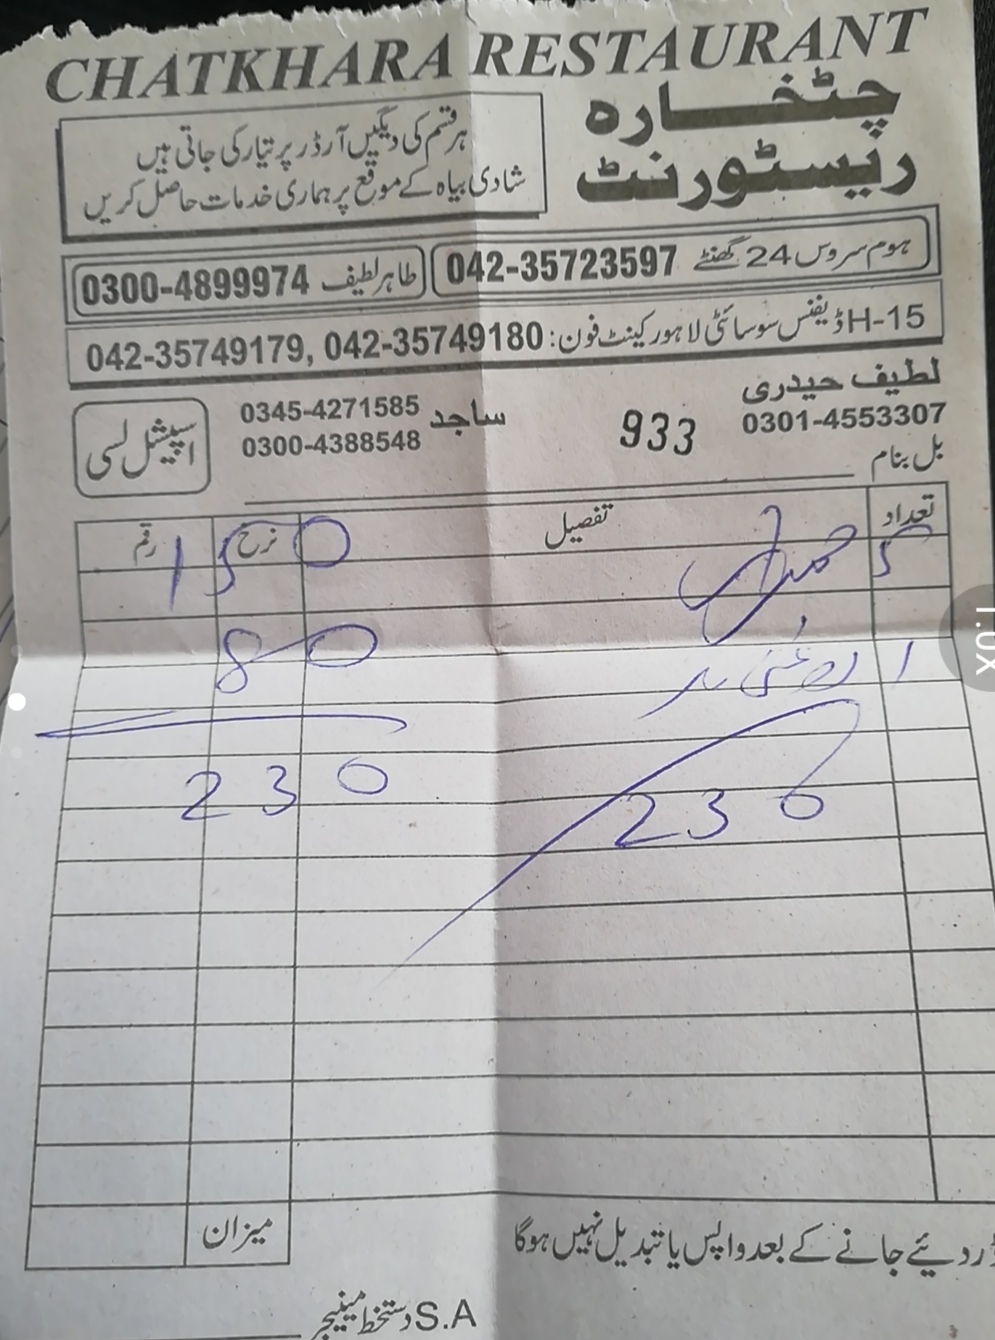 CHATKHARA RESTAURANT
چٹخارہ
ریسٹورنٹ
ہر قسم کی دیگیں آرڈر پر تیار کی جاتی ہیں
شادی بیاہ کے موقع پر ہماری خدمات حاصل کریں
ہوم سروس 24 گھنٹے 042-35723597
طاہر لطیف 0300-4899974
H-15 ڈیفنس سوسائٹی لاہور کینٹ فون: 042-35749179, 042-35749180
لطیف حیدری
0301-4553307
ساجد 0345-4271585
0300-4388548
اسپیشل لسی
933
بل بنام
تعداد تفصیل نرخ رقم
5 150
1 80
230
230
میزان
دئیے جانے کے بعد واپس یا تبدیل نہیں ہوگا
S.A دستخط مینیجر